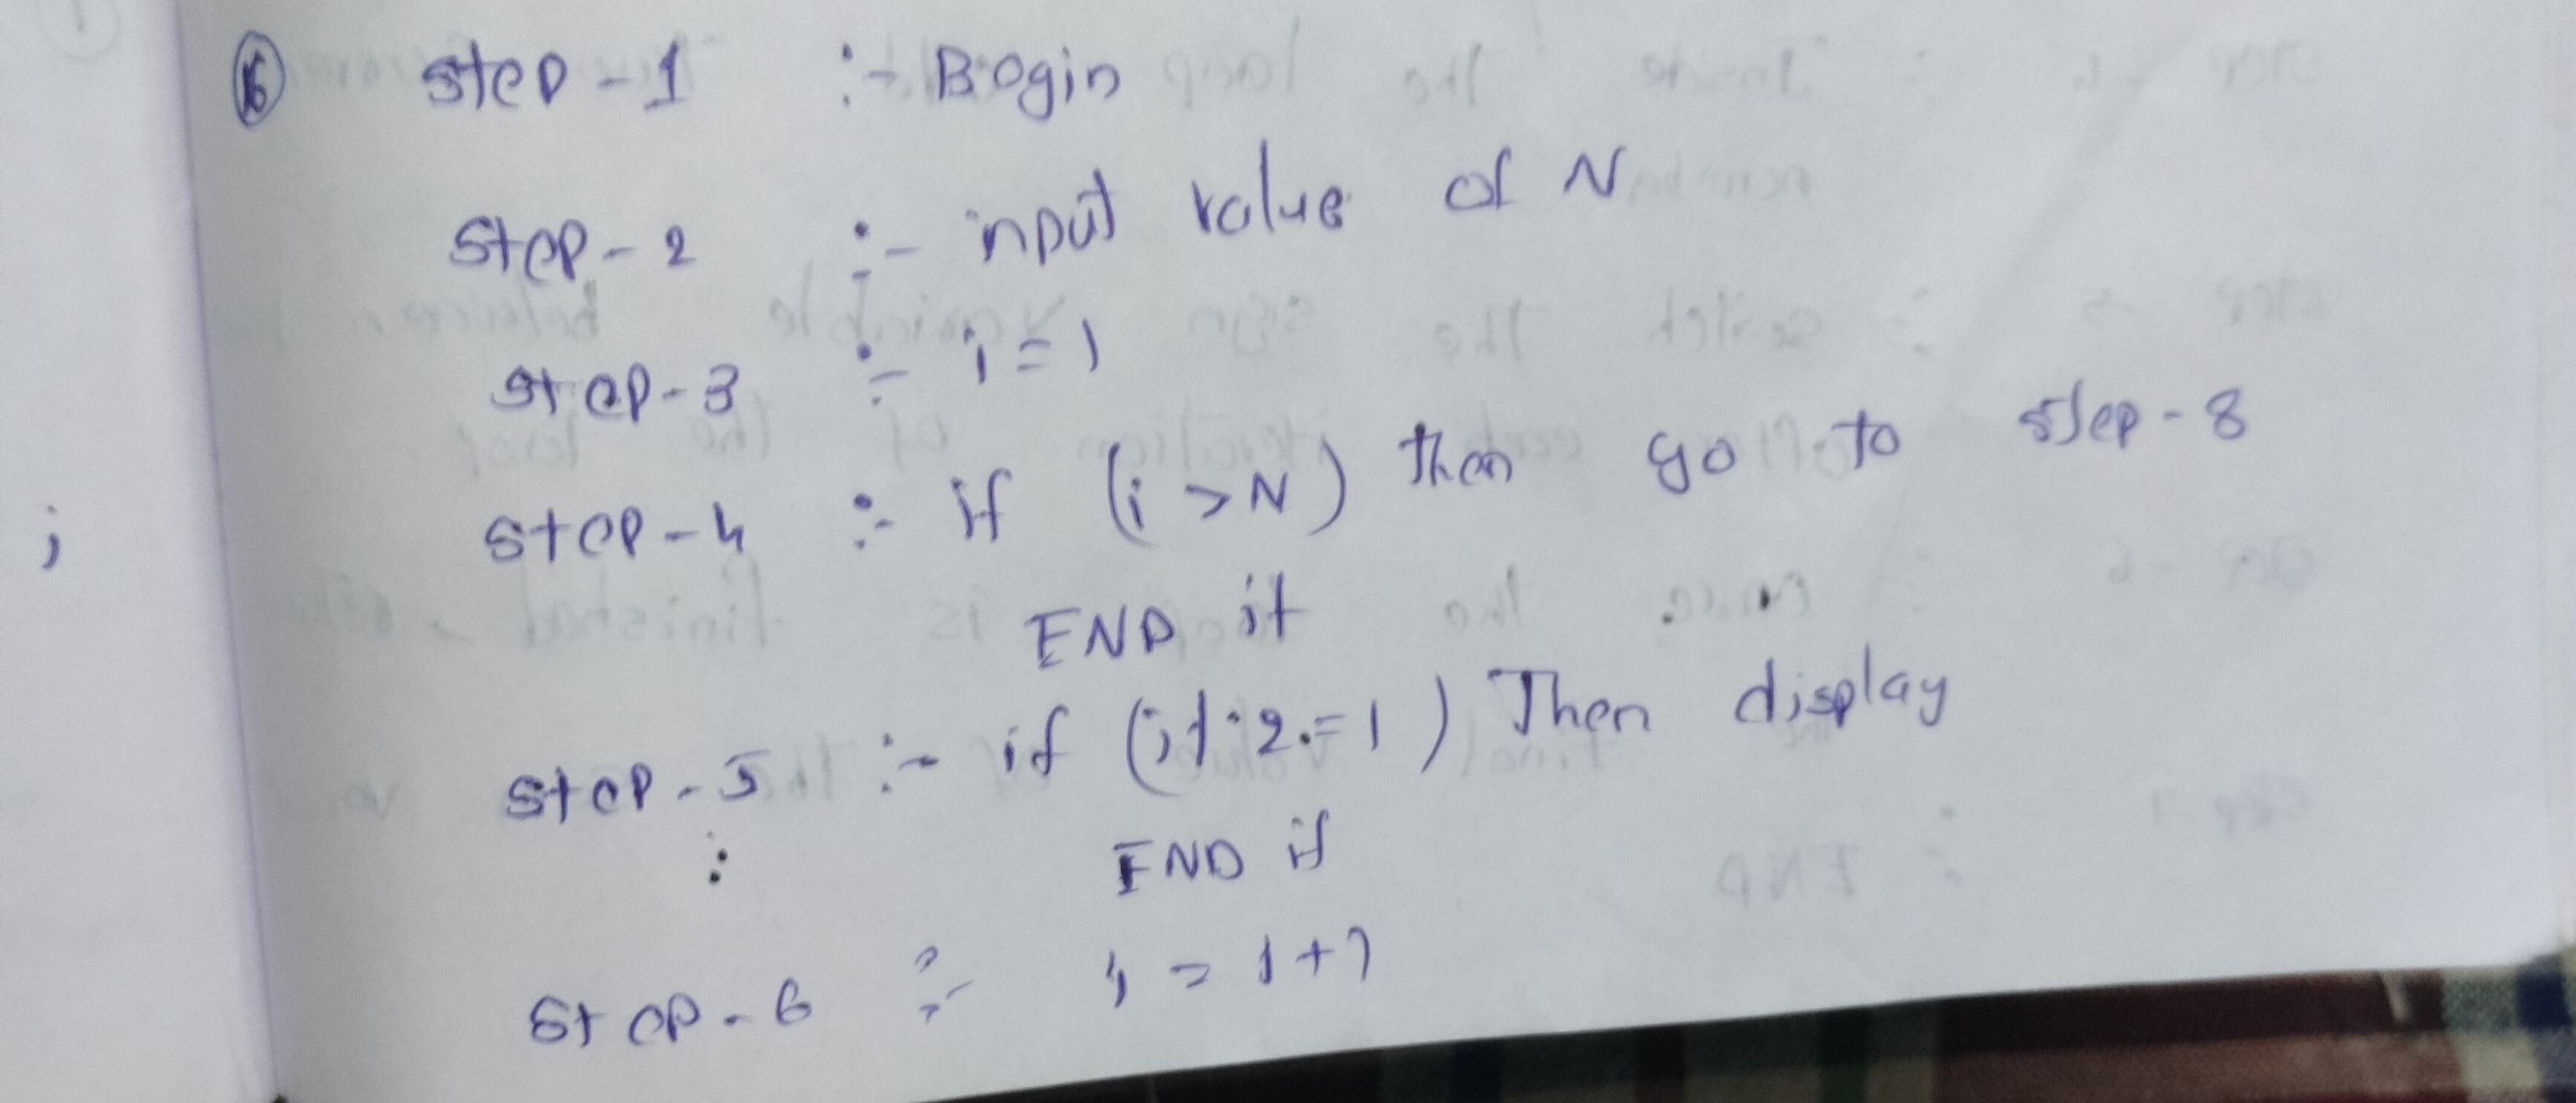 16 step-1 :- Begin
step-2 :- input value of N
step-3 :- i=1
step-4 :- if (i>N) then go to step-8
END if
step-5 :- if (i%2.=1) Then display
END if
step-6 :- i = 1+1
;